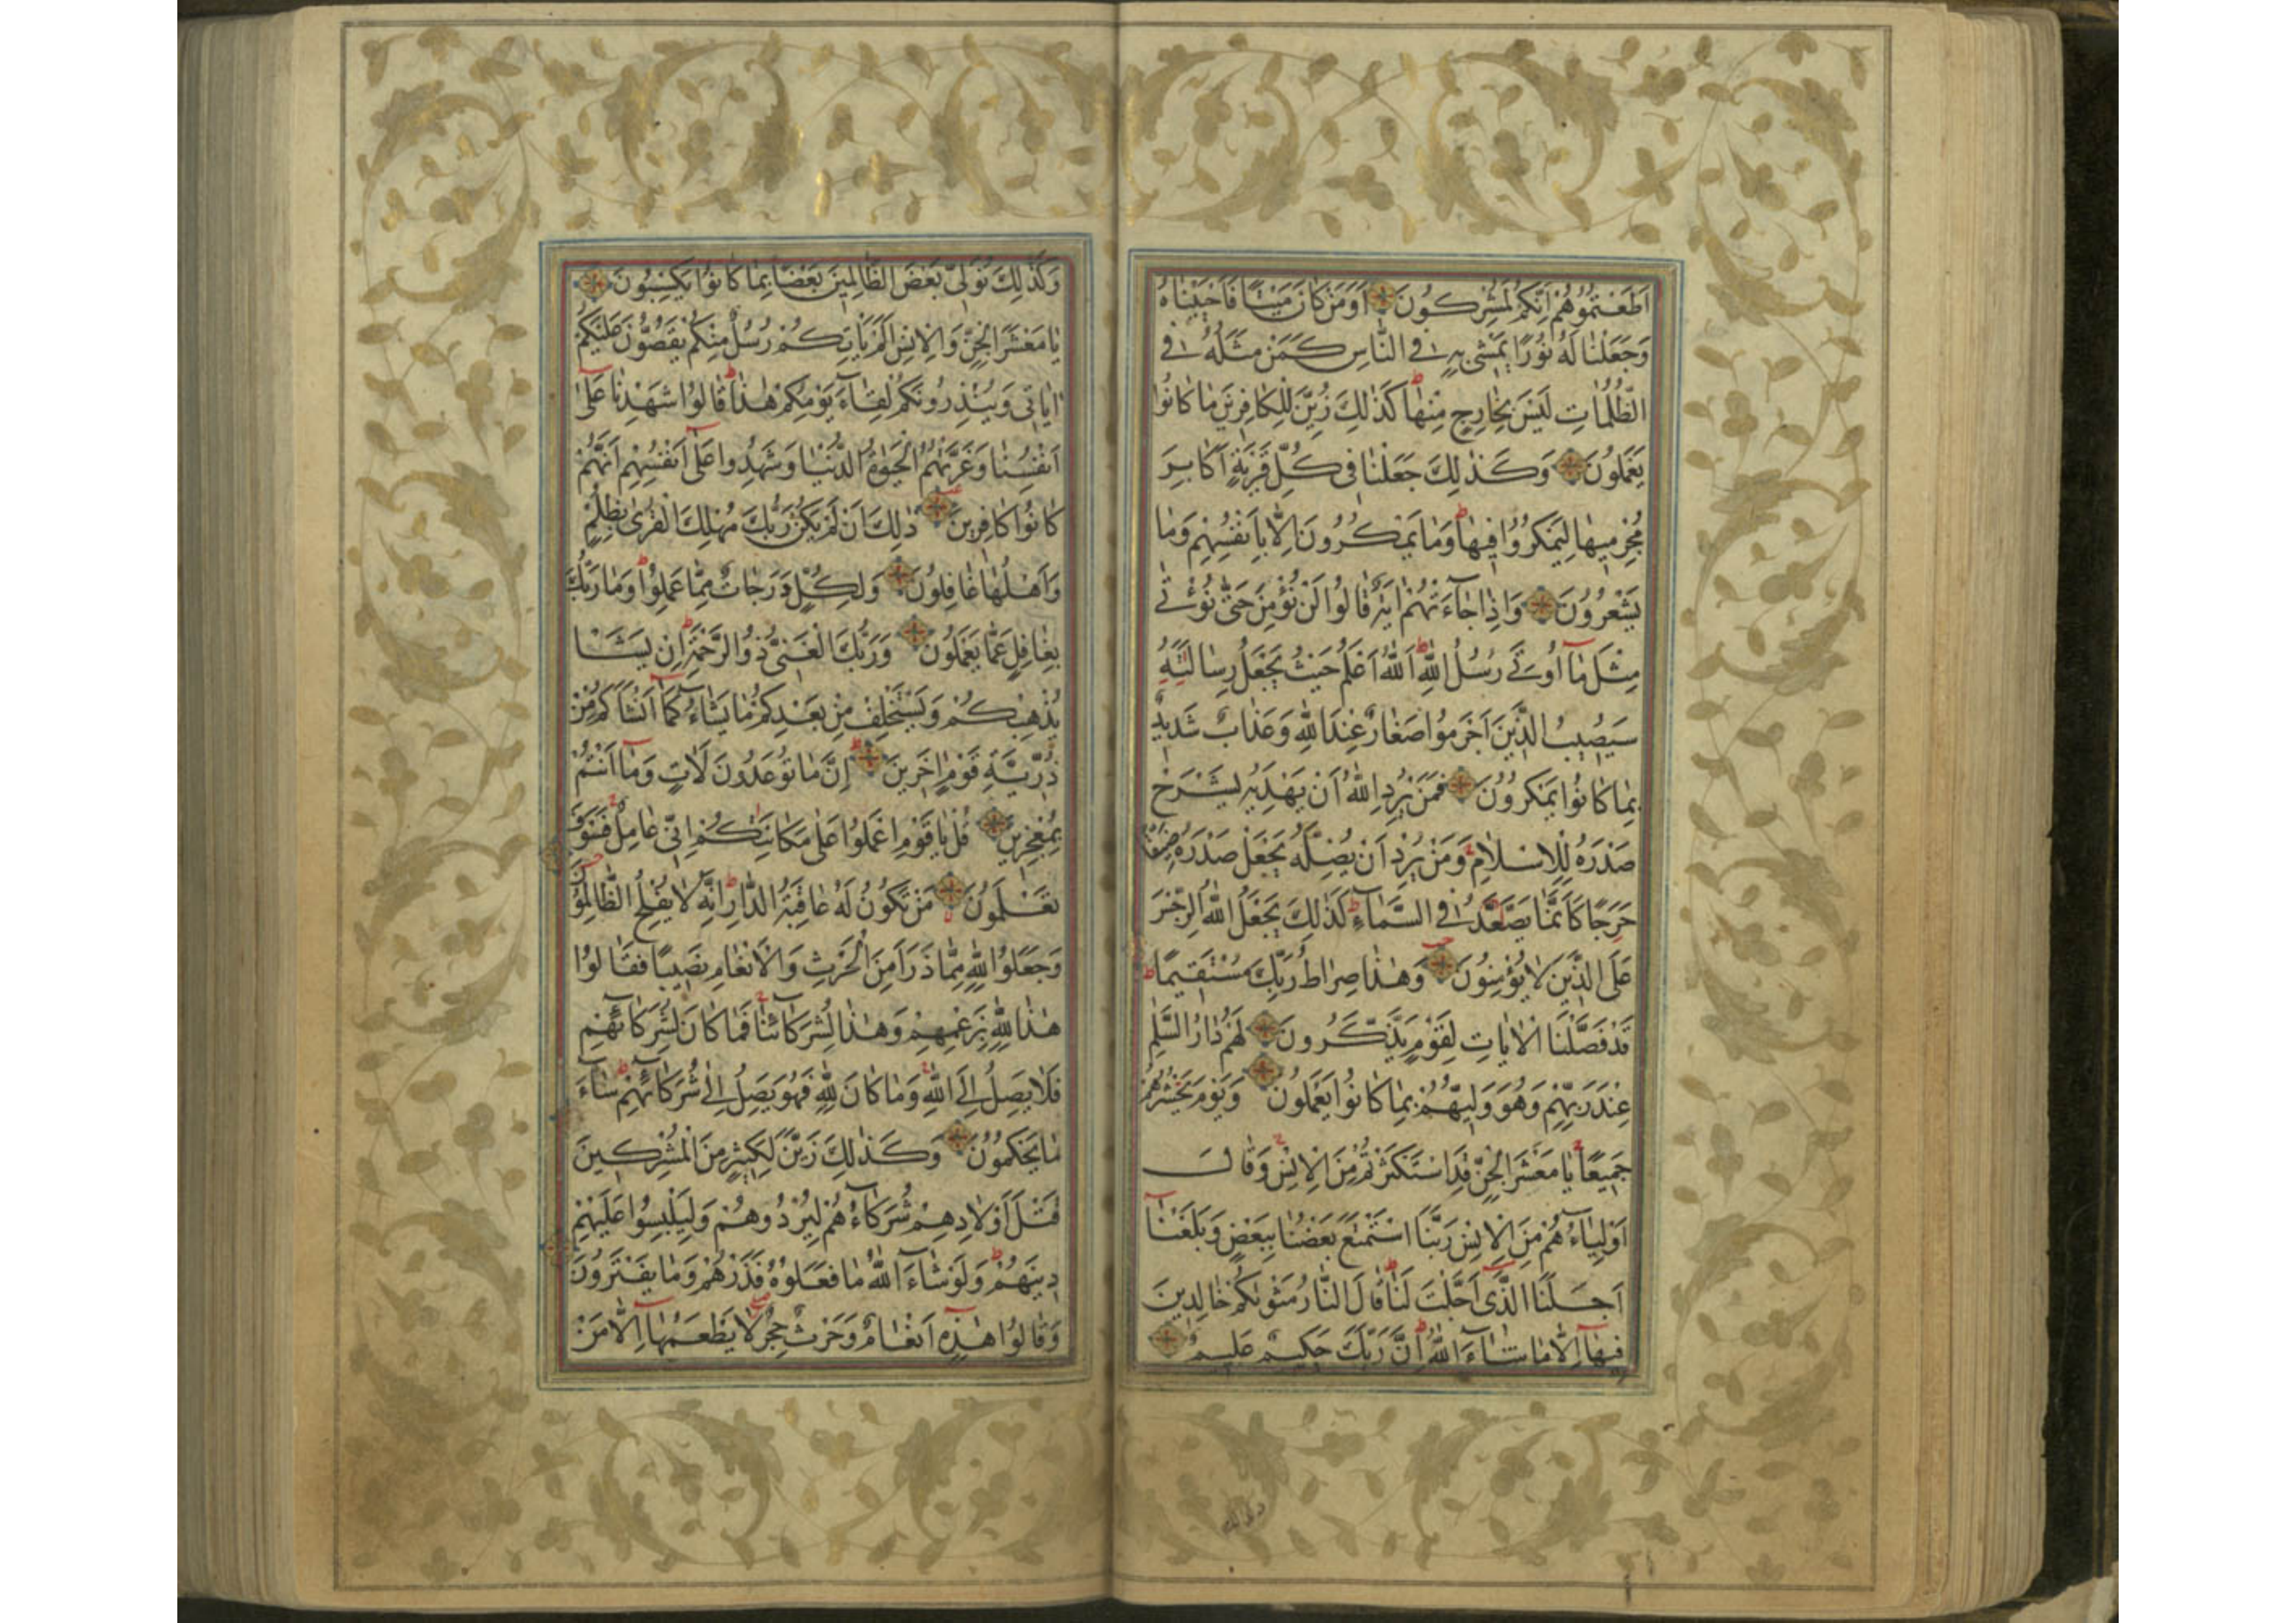 اَطَعْتُمُوهُمْ اِنَّكُمْ لَمُشْرِكُونَ اَوَمَنْ كَانَ مَيْتًا فَاَحْيَيْنَاهُ
وَجَعَلْنَا لَهُ نُورًا يَمْشِى بِهِ فِى النَّاسِ كَمَنْ مَثَلُهُ فِى
الظُّلُمَاتِ لَيْسَ بِخَارِجٍ مِنْهَا كَذٰلِكَ زُيِّنَ لِلْكَافِرِينَ مَا كَانُوا
يَعْمَلُونَ وَكَذٰلِكَ جَعَلْنَا فِى كُلِّ قَرْيَةٍ اَكَابِرَ
مُجْرِمِيهَا لِيَمْكُرُوا فِيهَا وَمَا يَمْكُرُونَ اِلَّا بِاَنْفُسِهِمْ وَمَا
يَشْعُرُونَ وَاِذَا جَآءَتْهُمْ اٰيَةٌ قَالُوا لَنْ نُؤْمِنَ حَتّٰى نُؤْتٰى
مِثْلَ مَآ اُوتِىَ رُسُلُ اللّٰهِ اَللّٰهُ اَعْلَمُ حَيْثُ يَجْعَلُ رِسَالَتَهُ
سَيُصِيبُ الَّذِينَ اَجْرَمُوا صَغَارٌ عِنْدَ اللّٰهِ وَعَذَابٌ شَدِيدٌ
بِمَا كَانُوا يَمْكُرُونَ فَمَنْ يُرِدِ اللّٰهُ اَنْ يَهْدِيَهُ يَشْرَحْ
صَدْرَهُ لِلْاِسْلَامِ وَمَنْ يُرِدْ اَنْ يُضِلَّهُ يَجْعَلْ صَدْرَهُ ضَيِّقًا
حَرَجًا كَاَنَّمَا يَصَّعَّدُ فِى السَّمَآءِ كَذٰلِكَ يَجْعَلُ اللّٰهُ الرِّجْسَ
عَلَى الَّذِينَ لَا يُؤْمِنُونَ وَهٰذَا صِرَاطُ رَبِّكَ مُسْتَقِيمًا
قَدْ فَصَّلْنَا الْاٰيَاتِ لِقَوْمٍ يَذَّكَّرُونَ لَهُمْ دَارُ السَّلٰمِ
عِنْدَ رَبِّهِمْ وَهُوَ وَلِيُّهُمْ بِمَا كَانُوا يَعْمَلُونَ وَيَوْمَ يَحْشُرُهُمْ
جَمِيعًا يَا مَعْشَرَ الْجِنِّ قَدِ اسْتَكْثَرْتُمْ مِنَ الْاِنْسِ وَقَالَ
اَوْلِيَآءُهُمْ مِنَ الْاِنْسِ رَبَّنَا اسْتَمْتَعَ بَعْضُنَا بِبَعْضٍ وَبَلَغْنَآ
اَجَلَنَا الَّذِى اَجَّلْتَ لَنَا قَالَ النَّارُ مَثْوٰيكُمْ خَالِدِينَ
فِيهَآ اِلَّا مَا شَآءَ اللّٰهُ اِنَّ رَبَّكَ حَكِيمٌ عَلِيمٌ
وَكَذٰلِكَ نُوَلِّى بَعْضَ الظَّالِمِينَ بَعْضًا بِمَا كَانُوا يَكْسِبُونَ
يَا مَعْشَرَ الْجِنِّ وَالْاِنْسِ اَلَمْ يَاْتِكُمْ رُسُلٌ مِنْكُمْ يَقُصُّونَ عَلَيْكُمْ
اٰيَاتِى وَيُنْذِرُونَكُمْ لِقَآءَ يَوْمِكُمْ هٰذَا قَالُوا شَهِدْنَا عَلٰىٓ
اَنْفُسِنَا وَغَرَّتْهُمُ الْحَيٰوةُ الدُّنْيَا وَشَهِدُوا عَلٰىٓ اَنْفُسِهِمْ اَنَّهُمْ
كَانُوا كَافِرِينَ ذٰلِكَ اَنْ لَمْ يَكُنْ رَبُّكَ مُهْلِكَ الْقُرٰى بِظُلْمٍ
وَاَهْلُهَا غَافِلُونَ وَلِكُلٍّ دَرَجَاتٌ مِمَّا عَمِلُوا وَمَا رَبُّكَ
بِغَافِلٍ عَمَّا يَعْمَلُونَ وَرَبُّكَ الْغَنِىُّ ذُو الرَّحْمَةِ اِنْ يَشَاْ
يُذْهِبْكُمْ وَيَسْتَخْلِفْ مِنْ بَعْدِكُمْ مَا يَشَآءُ كَمَآ اَنْشَاَكُمْ مِنْ
ذُرِّيَّةِ قَوْمٍ اٰخَرِينَ اِنَّ مَا تُوعَدُونَ لَاٰتٍ وَمَآ اَنْتُمْ
بِمُعْجِزِينَ قُلْ يَا قَوْمِ اعْمَلُوا عَلٰى مَكَانَتِكُمْ اِنِّى عَامِلٌ فَسَوْفَ
تَعْلَمُونَ مَنْ تَكُونُ لَهُ عَاقِبَةُ الدَّارِ اِنَّهُ لَا يُفْلِحُ الظَّالِمُونَ
وَجَعَلُوا لِلّٰهِ مِمَّا ذَرَاَ مِنَ الْحَرْثِ وَالْاَنْعَامِ نَصِيبًا فَقَالُوا
هٰذَا لِلّٰهِ بِزَعْمِهِمْ وَهٰذَا لِشُرَكَآئِنَا فَمَا كَانَ لِشُرَكَآئِهِمْ
فَلَا يَصِلُ اِلَى اللّٰهِ وَمَا كَانَ لِلّٰهِ فَهُوَ يَصِلُ اِلٰى شُرَكَآئِهِمْ سَآءَ
مَا يَحْكُمُونَ وَكَذٰلِكَ زَيَّنَ لِكَثِيرٍ مِنَ الْمُشْرِكِينَ
قَتْلَ اَوْلَادِهِمْ شُرَكَآءُهُمْ لِيُرْدُوهُمْ وَلِيَلْبِسُوا عَلَيْهِمْ
دِينَهُمْ وَلَوْ شَآءَ اللّٰهُ مَا فَعَلُوهُ فَذَرْهُمْ وَمَا يَفْتَرُونَ
وَقَالُوا هٰذِهِٓ اَنْعَامٌ وَحَرْثٌ حِجْرٌ لَا يَطْعَمُهَآ اِلَّا مَنْ